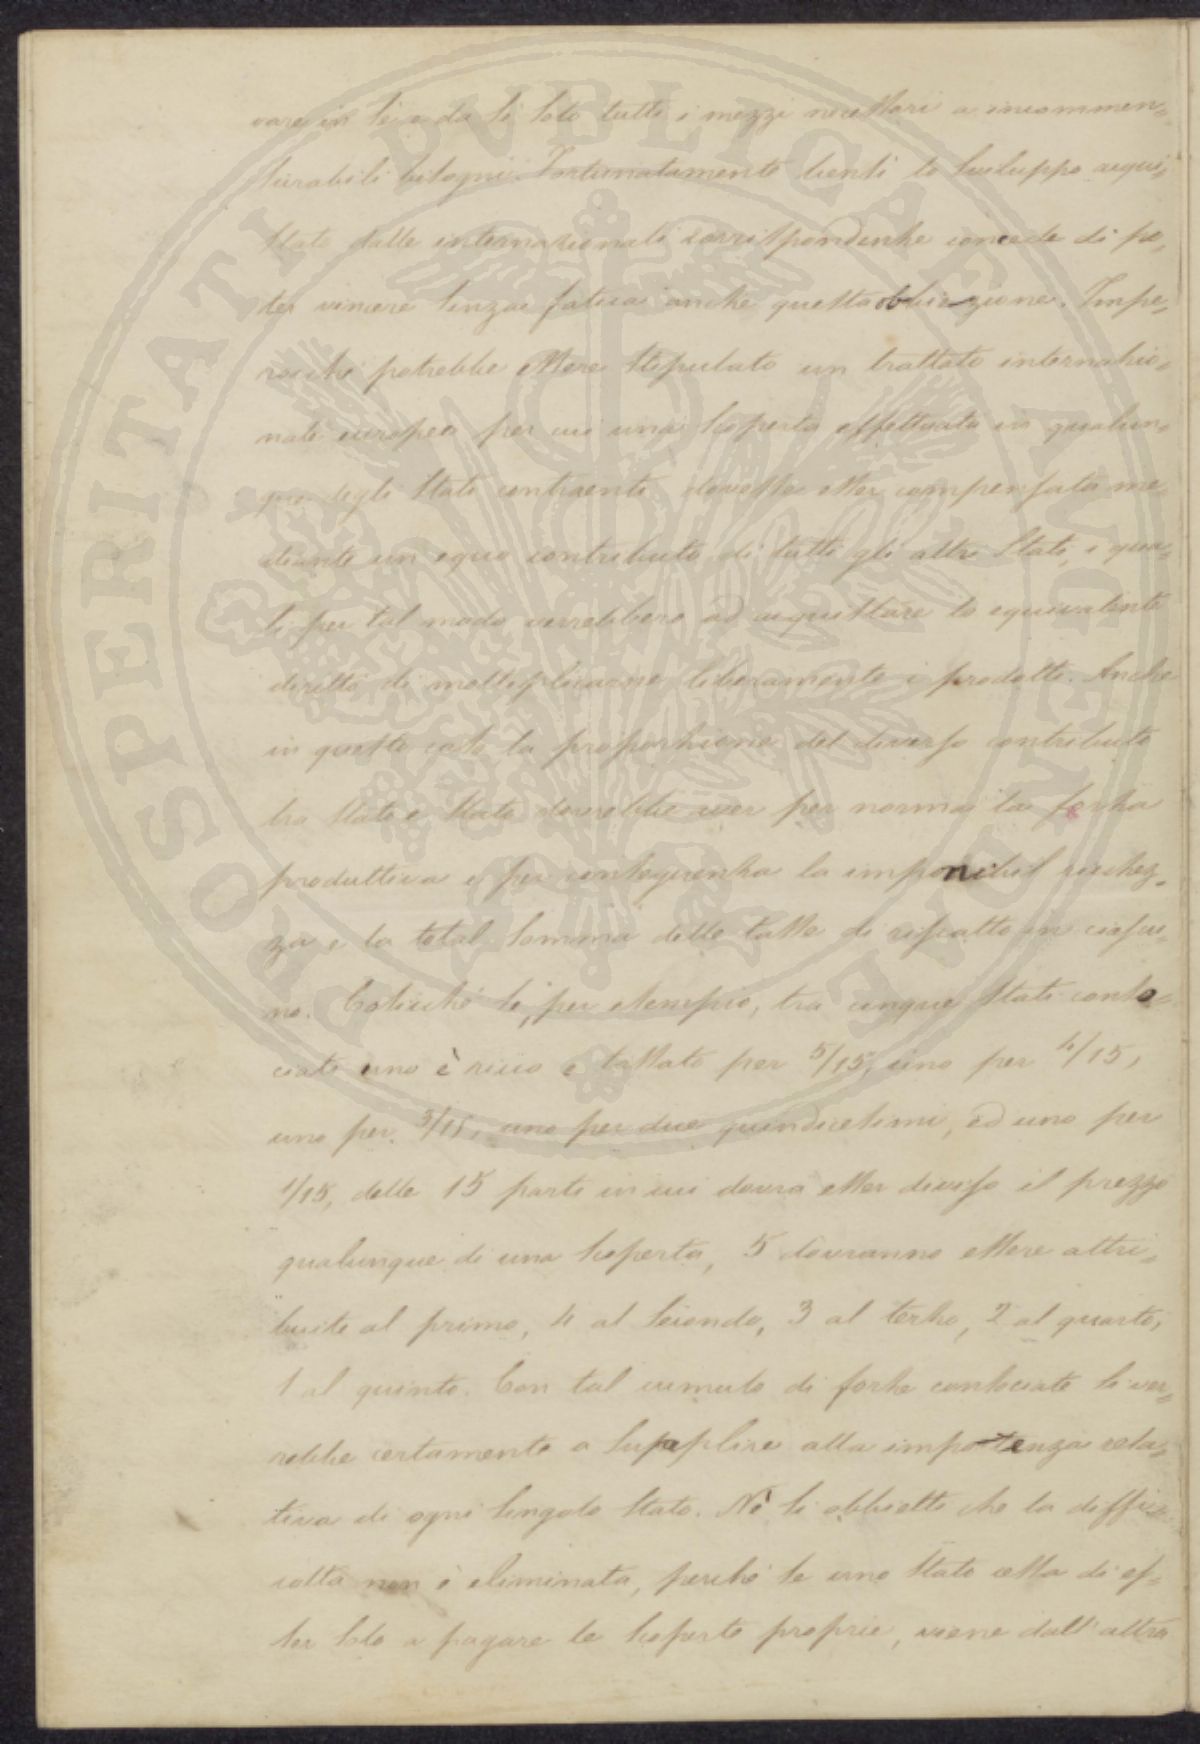 vare in sè e da sè solo tutti i mezzi necessari a incommen=
surabili bisogni. Fortunatamente bensì lo sviluppo acqui=
stato dalle internazionali corrispondenze concede di po=
ter vincere senza fatica anche questa obbiezione. Impe=
rocchè potrebbe essere stipulato un trattato internazio=
nale europeo per cui una scoperta effettuata in qualun=
que degli Stati contraenti dovesse esser compensata me=
diante un equo contributo di tutti gli altri Stati, i qua=
li per tal modo verrebbero ad acquistare lo equivalente
diritto di moltiplicarne liberamente i prodotti. Anche
in questo caso la proporzione del diverso contributo
tra Stato e Stato dovrebbe aver per norma la forza
produttiva e per conseguenza la imponibil ricchez=
za e la total somma delle tasse di riscatto in ciascu=
no. Cosicchè se, per esempio, tra cinque Stati conso=
ciati uno è ricco e tassato per 5/15, uno per 4/15,
uno per 3/15, uno per due quindicesimi, ed uno per
1/15, delle 15 parti in cui dovrà esser diviso il prezzo
qualunque di una scoperta, 5 dovranno essere attri=
buite al primo, 4 al secondo, 3 al terzo, 2 al quarto,
1 al quinto. Con tal cumulo di forze consociate si ver=
rebbe certamente a supplire alla impotenza rela=
tiva di ogni singolo Stato. Nè si obbietti che la diffi=
coltà non è eliminata, perchè se uno Stato cessa di es=
ser solo a pagare le scoperte proprie, viene dall'altra
PROSPERITATI PVBLICAE AVGENDAE